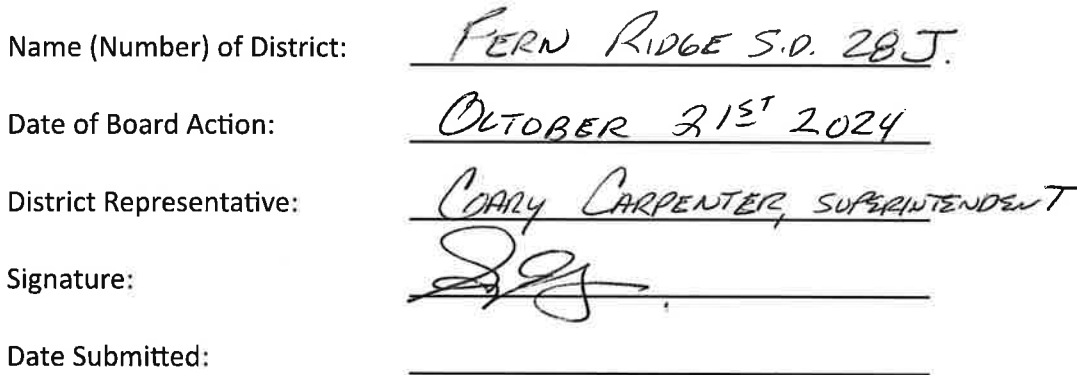 Name (Number) of District: FERN RIDGE S.D. 28J.
Date of Board Action: OCTOBER 21ST 2024
District Representative: GARY CARPENTER, SUPERINTENDENT
Signature:
Date Submitted: